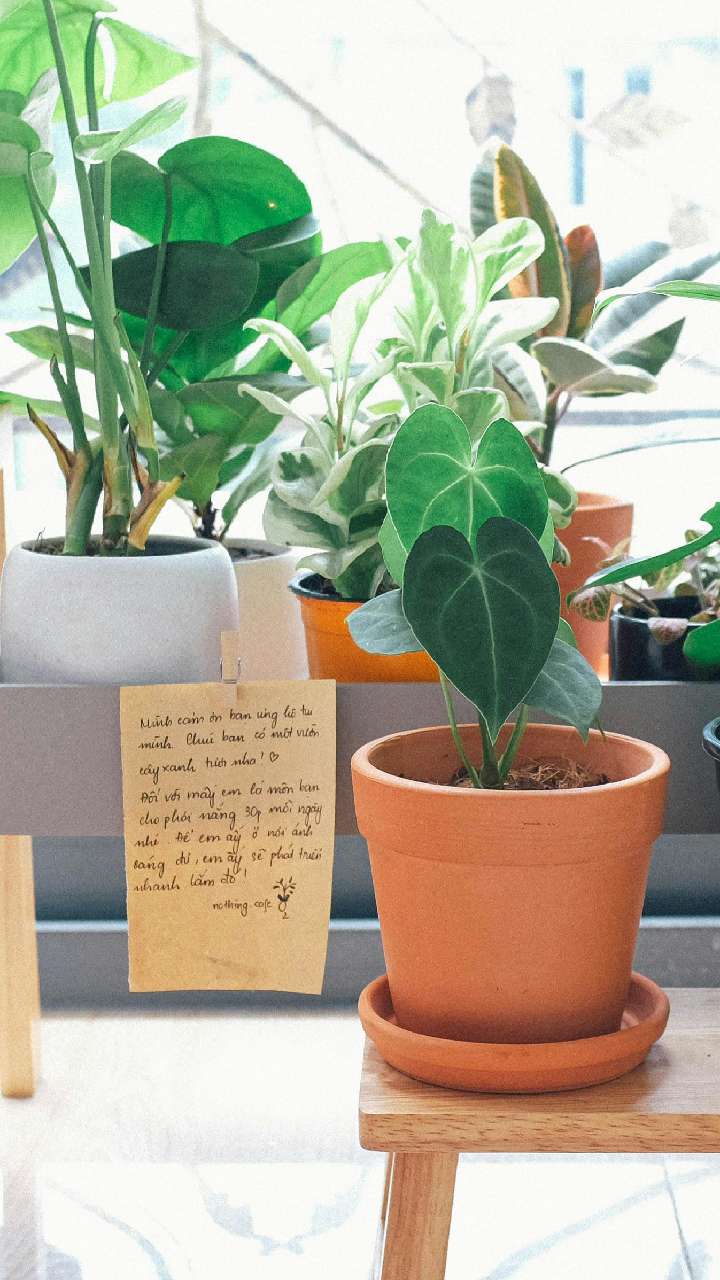 Mình cảm ơn bạn ủng hộ tụi
mình. Chúc bạn có một vườn
cây xanh tươi nha! ♡
Đối với mấy em lá môn bạn
cho phơi nắng 30p mỗi ngày
nhé. Để em ấy ở nơi ánh
sáng đủ, em ấy sẽ phát triển
nhanh lắm đó!
nothing cafe